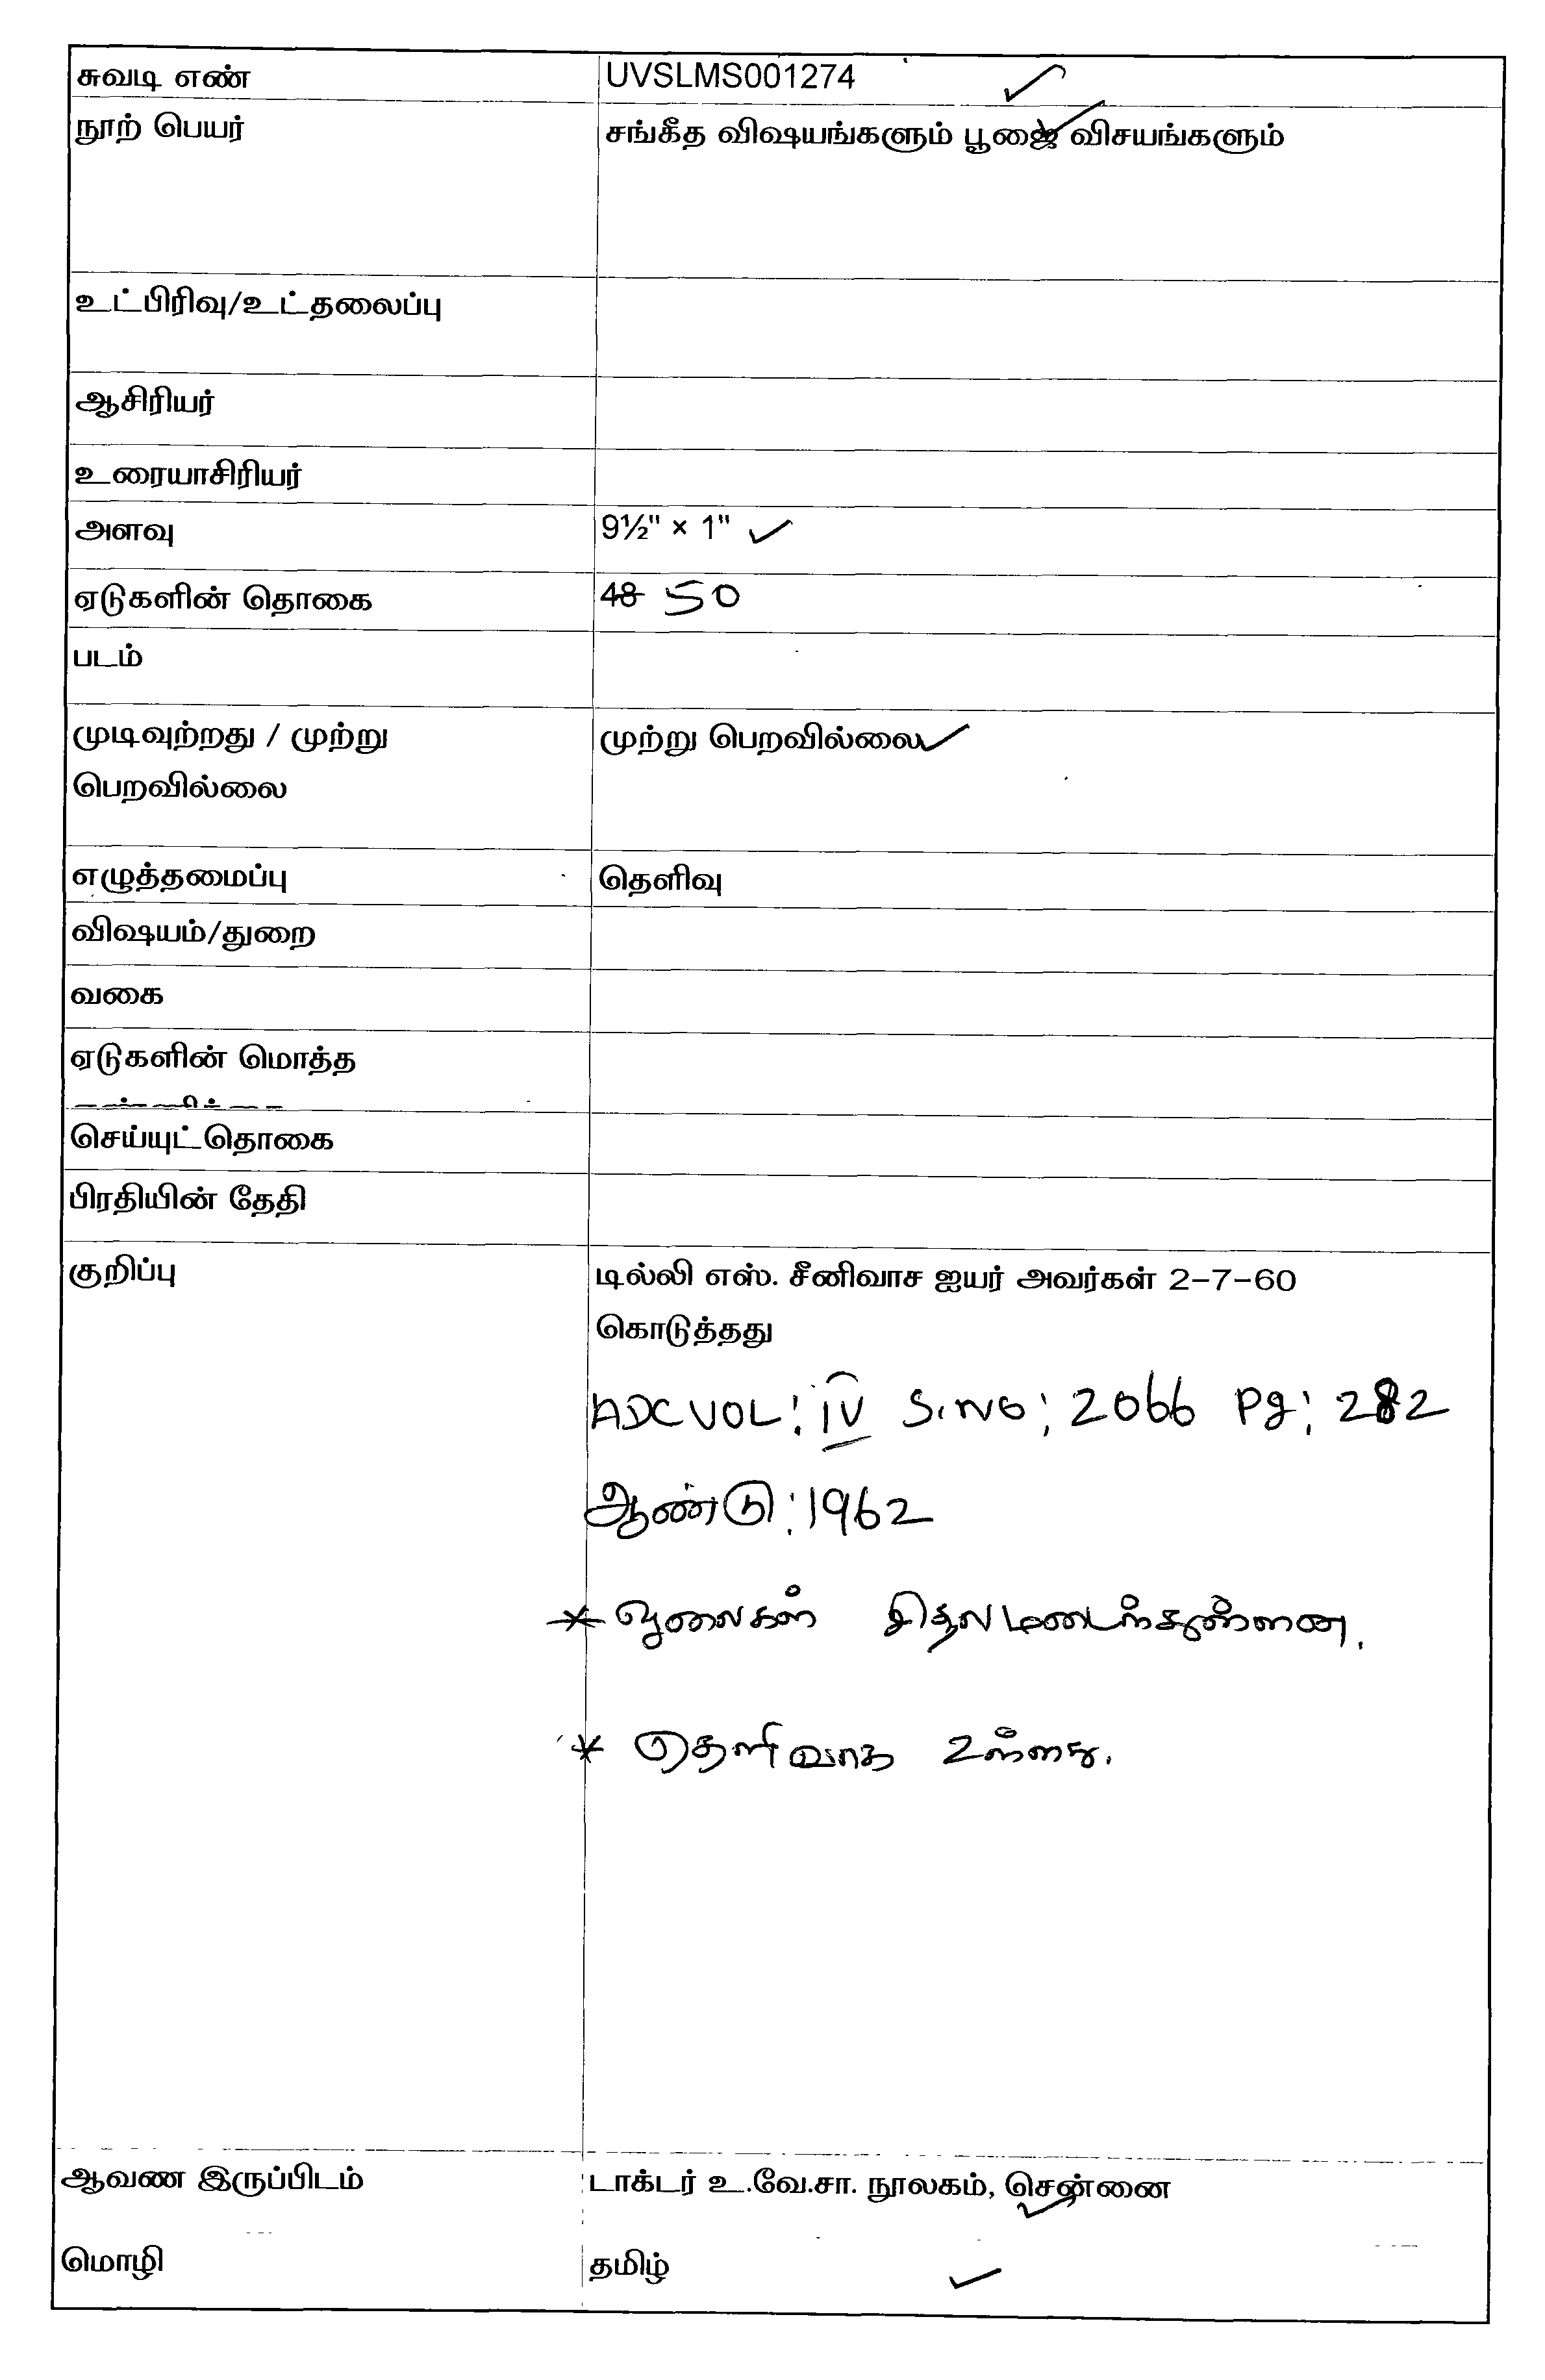 சுவடி எண் UVSLMS001274 ✓
நூற் பெயர் சங்கீத விஷயங்களும் பூஜை விசயங்களும் ✓
உட்பிரிவு/உட்தலைப்பு
ஆசிரியர்
உரையாசிரியர்
அளவு 9½" × 1" ✓
ஏடுகளின் தொகை 48 50
படம்
முடிவுற்றது / முற்று முற்று பெறவில்லை ✓
பெறவில்லை
எழுத்தமைப்பு தெளிவு
விஷயம்/துறை
வகை
ஏடுகளின் மொத்த
செய்யுட்தொகை
பிரதியின் தேதி
குறிப்பு டில்லி எஸ். சீனிவாச ஐயர் அவர்கள் 2-7-60
கொடுத்தது
ADC VOL: IV S.No: 2066 Pg: 282
ஆண்டு: 1962
* ஓலைகள் சிதலமடைந்துள்ளன.
* தெளிவாக உள்ளது.
ஆவண இருப்பிடம் டாக்டர் உ.வே.சா. நூலகம், சென்னை ✓
மொழி தமிழ் ✓